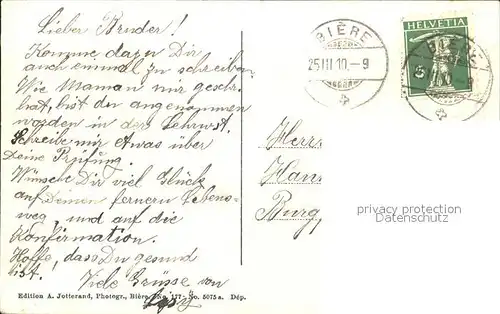 Lieber Bruder!
Komme dazu Dir
auch einmal zu schreiben.
Wie Maman nur geschr.
hat, bist du angenommen
worden in der Lehrwst.
Schreibe mir etwas über
Deine Prüfung.
Wünsche Dir viel Glück
auf Deinen fernern Lebens-
weg, und auf die
Konfirmation.
Hoffe, dass Du gesund
bist.
Viele Grüsse von
BIÈRE
25 III 10.-9
HELVETIA
5
BIÈRE
Herrn
Han
Burg
privacy protection
Datenschutz
Edition A. Jotterand, Photogr., Bière. No. 177 - No. 5075 a. Dép.